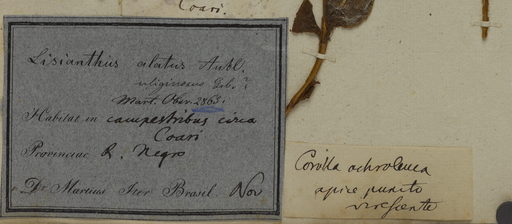 Coari.
Lisianthus alatus Aubl.
uliginosus Gb.?
Mart. Obs. 2863.
Habitat in campestribus circa
Coari
Provinciae R. Negro
Dr. Martius Iter Brasil. Nov
Corolla ochroleuca
apice punito
virescente